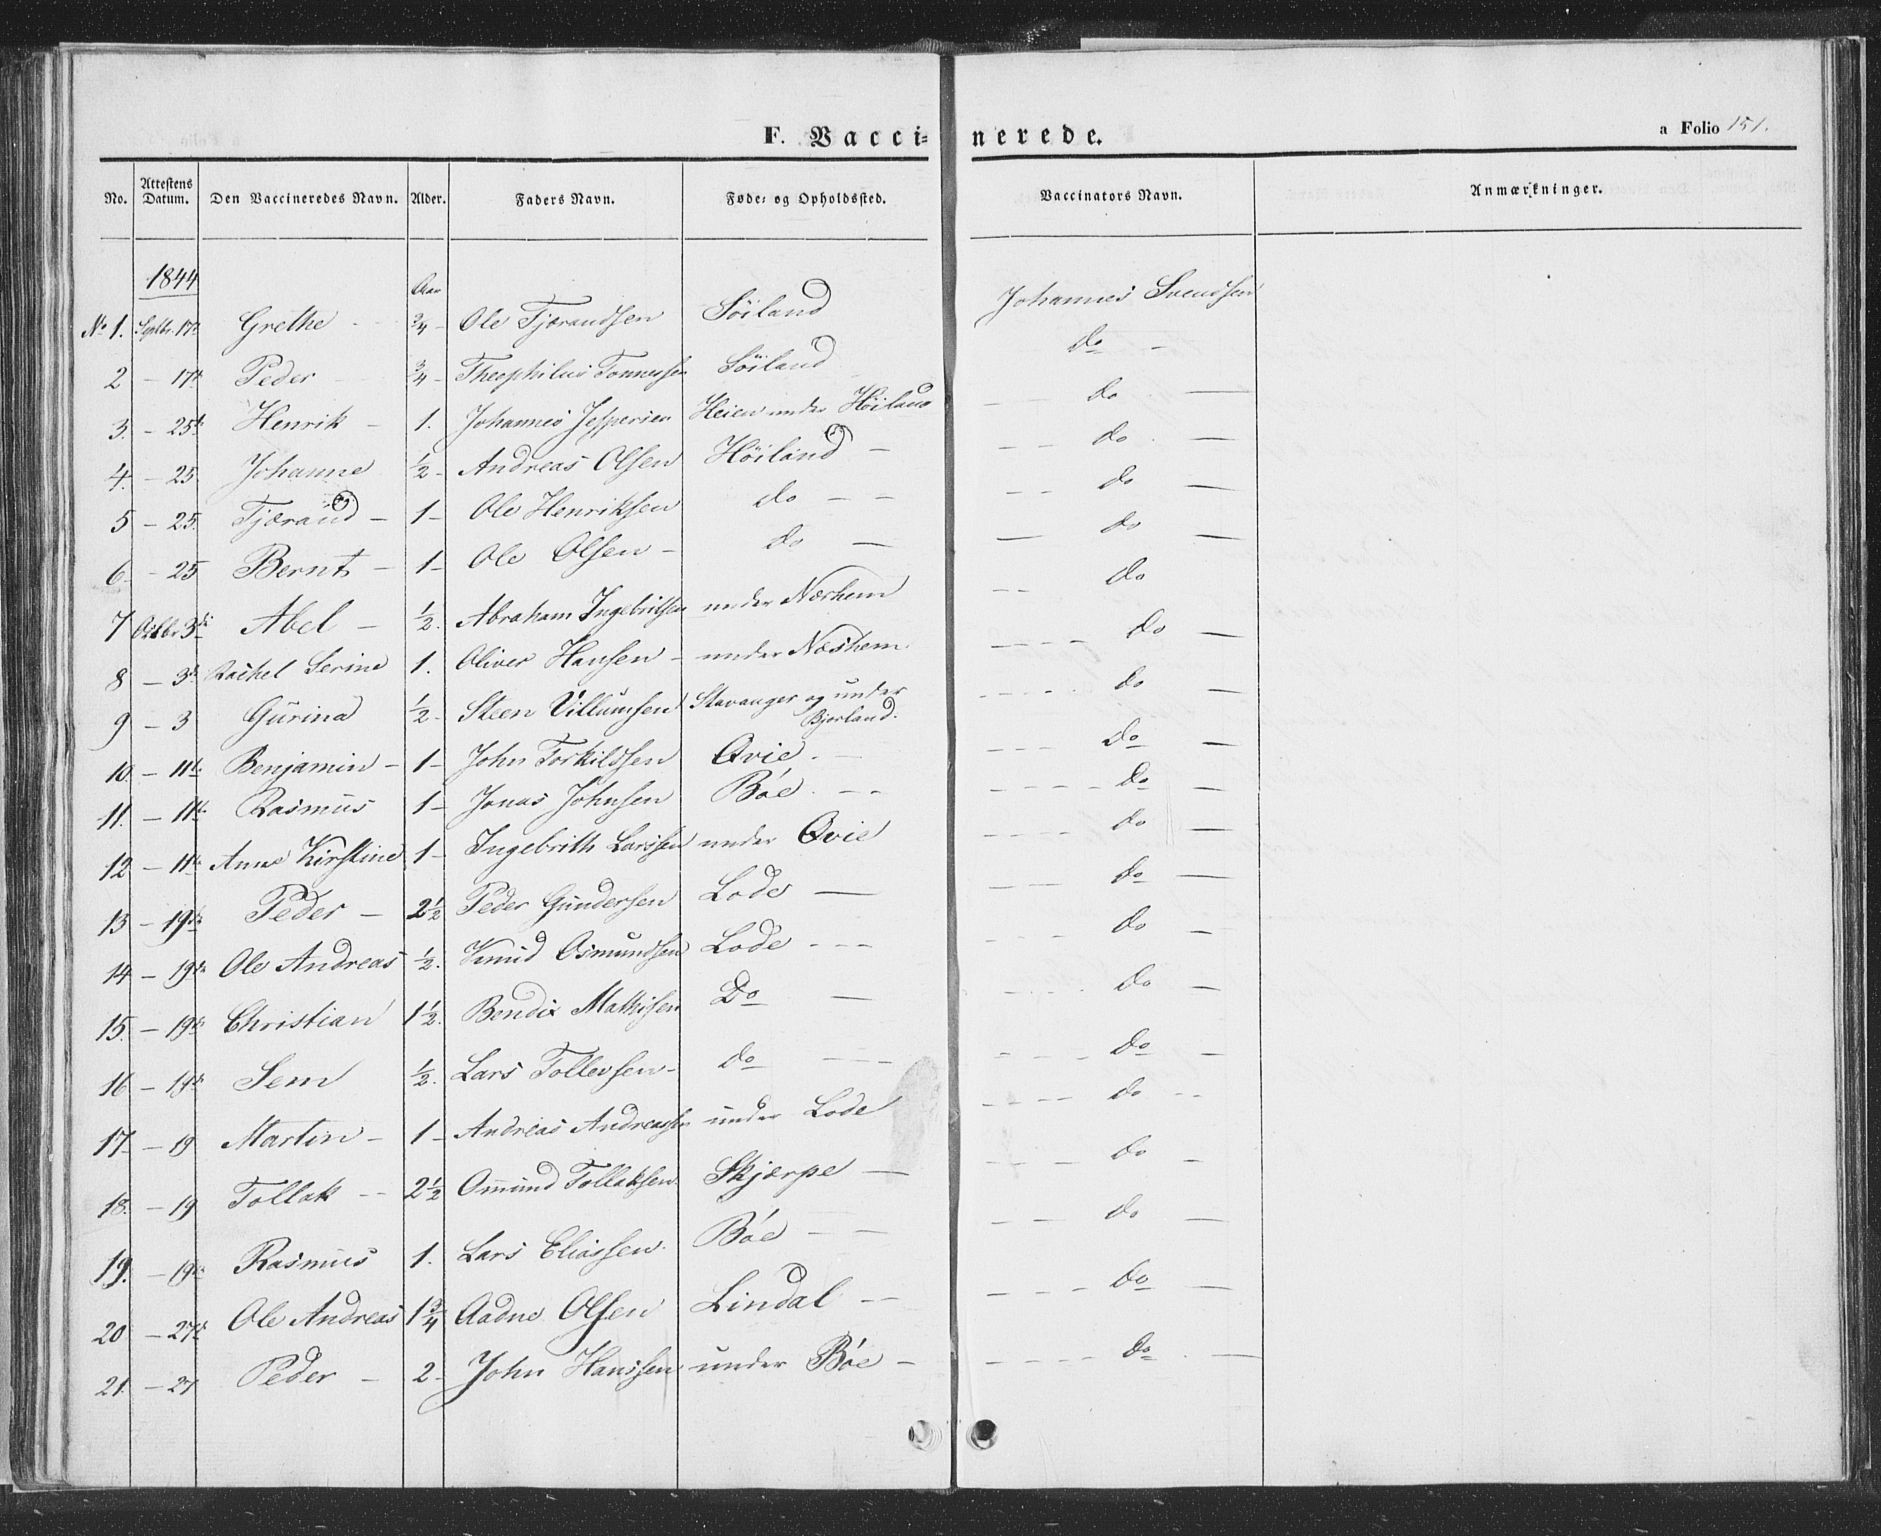 F. Vaccinerede. a Folio 151.
No. Attestens Datum. Den Vaccineredes Navn. Alder. Faders Navn. Føde- og Opholdssted. Vaccinators Navn. Anmærkninger.
1844
Aar
No 1. Septbr. 17de Grethe - 3/4 - Ole Tjærandsen Söiland Johannes Svendsen
2 - 17de Peder 3/4 - Theophilus Tonnesen Söiland do -
3. - 25de Henrik - 1. Johannes Jespersen Heien under Höiland - do -
4. - 25 Johanne 1/2 - Andreas Olsen Höiland - - do -
5 - 25. Tjærand - 1 - Ole Henriksen do - - - do -
6 - 25 Bernt - 1 - Ole Olsen - do - - do -
7 Octbr 3de Abel - 1/2. Abraham Ingebritsen under Nærhem - do
8 - 3de Rachel Serine 1. Oliver Hansen - under Næshem - do -
9 - 3 Gurina 1/2 - Steen Villumsen Stavanger og under
Bjorland. - do -
10. - 11te Benjamin - 1 - John Torkildsen Qvie. - - do -
11. - 11te Rasmus 1 - Jonas Johnsen Bóe. - - - do -
12 - 11te Anne Kirstine 1 - Ingebrith Larssen under Qvie - do -
13 - 19de Peder - 2 1/2 Peder Gundersen Lode - - do -
14 - 19de Ole Andreas 1/2. Knud Osmundsen Lode - - - do -
15. - 19de Christian 1 1/2. Bendix Mathisen Do - - do -
16 - 19de Sem 1/2. Lars Tollevsen - do - - do -
17 - 19 Martin - 1 - Andreas Andreassen under Lode - do - -
18. - 19 Tollak - - 2 1/2 Omund Tollaksen. Skjærpe - - do -
19. - 19de Rasmus 1. Lars Eliassen. Bóe - - - do -
20 - 27de Ole Andreas 1 3/4 Aadne Olsen Lindal - - do -
21. - 27 Peder - 2 - John Hanssen under Bóe - - do -